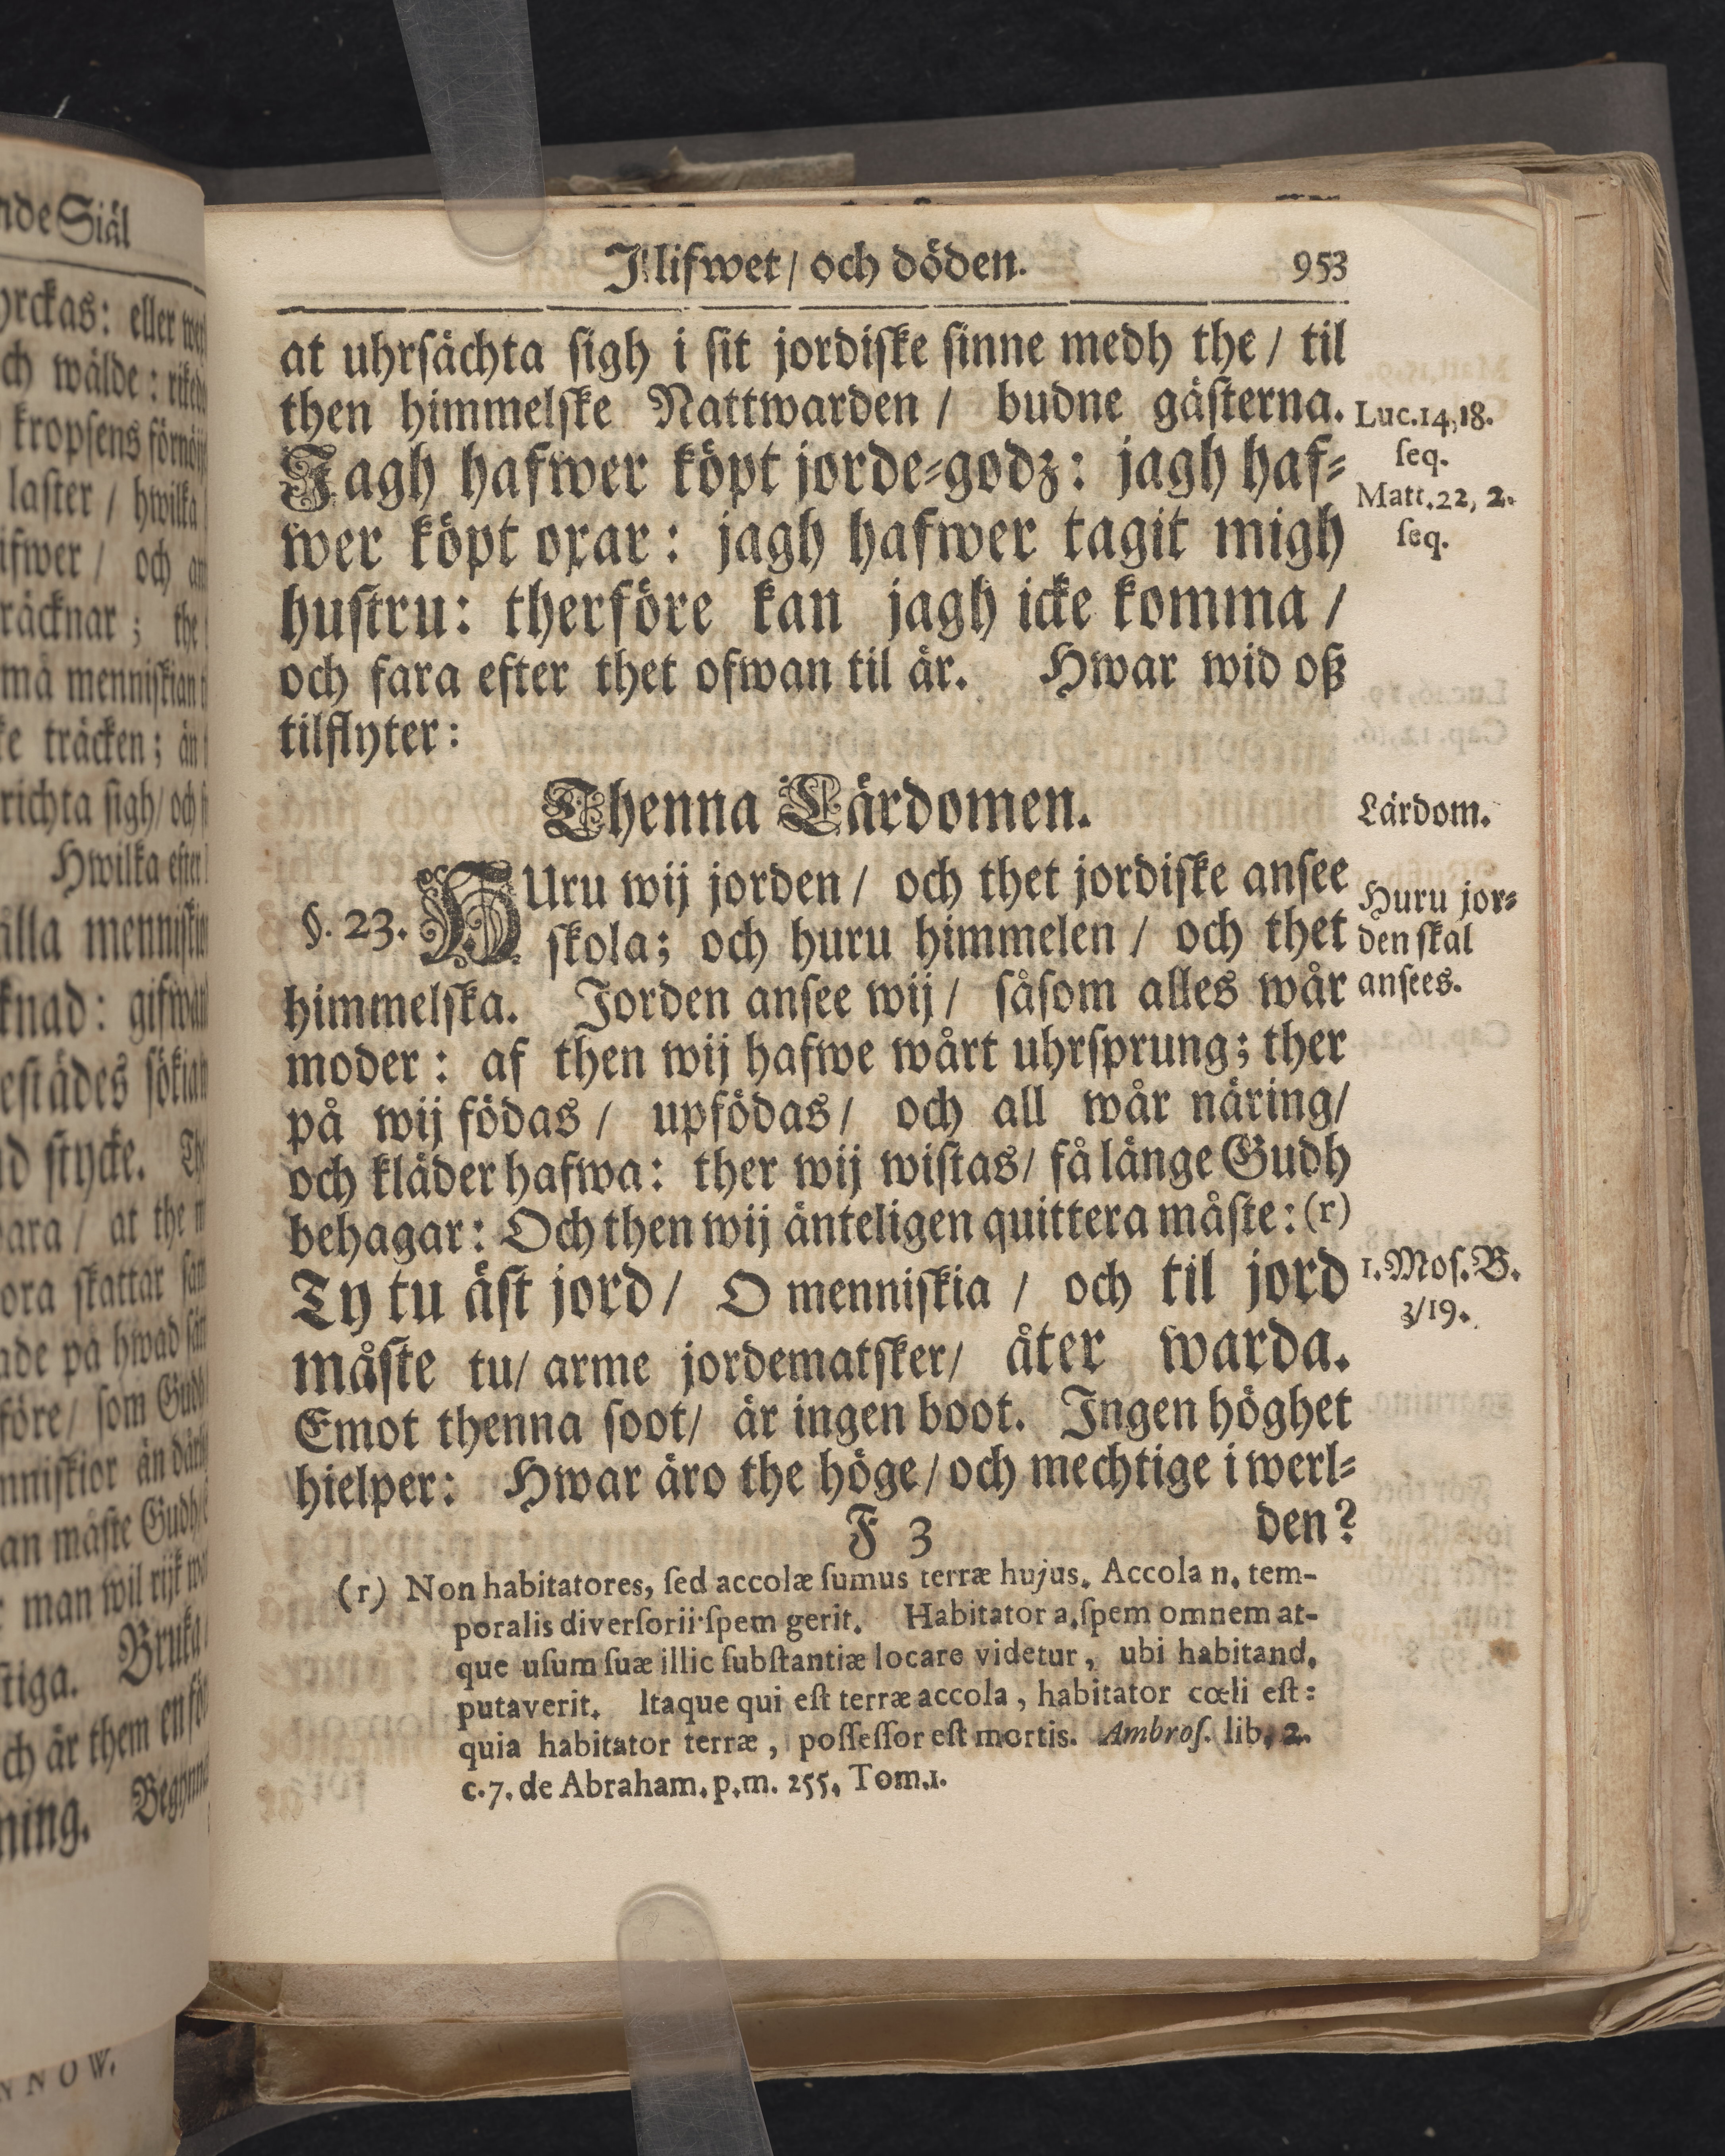 nde Siäl
yrckas: eller
ch wälde:
kropsens
laster / hwilka
ifwer / och
räcknar; the
må menniskian
ke träcken; än
richta sigh/ och
Hwilka efter
älla
knad:
estädes
nd stycke.
ara / at the
ora skattar
ade på hwad
före/ som Gudh
än
an måste Gudh
man wil rijk
stiga. Bruka
ch är them en
ning.
NNOW.
I lifwet / och döden.
953
at uhrsächta sigh i sit jordiske sinne medh the / til
then himmelske Nattwarden / budne gästerna.
Jagh hafwer köpt jorde-godz: jagh haf-
wer köpt oxar: jagh hafwer tagit migh
hustru: therföre kan jagh icke komma /
och fara efter thet ofwan til är. Hwar wid oß
tilflyter:
Luc.14,18.
seq.
Matt.22, 2.
seq.
Thenna Lärdomen.
Lärdom.
§. 23. HUru wij jorden / och thet jordiske ansee
skola; och huru himmelen / och thet
himmelska. Jorden ansee wij / såsom alles wår
moder: af then wij hafwe wårt uhrsprung; ther
på wij födas / upfödas / och all wår näring/
och kläder hafwa: ther wij wistas/ få länge Gudh
behagar: Och then wij änteligen quittera måste: (r)
Ty tu äst jord / O menniskia / och til jord
måste tu/ arme jordematsker/ åter warda.
Emot thenna soot/ är ingen boot. Ingen höghet
hielper: Hwar äro the höge / och mechtige i werl-
Huru jor-
den skal
ansees.
1. Mos. B.
3/19.
F 3
den?
(r) Non habitatores, sed accolæ sumus terræ hujus. Accola n. tem-
poralis diversorii spem gerit. Habitator a. spem omnem at-
que usum suæ illic substantiæ locare videtur, ubi habitand.
putaverit. Itaque qui est terræ accola, habitator cœli est:
quia habitator terræ, possessor est mortis. Ambros. lib. 2.
c.7. de Abraham. p.m. 255. Tom.1.